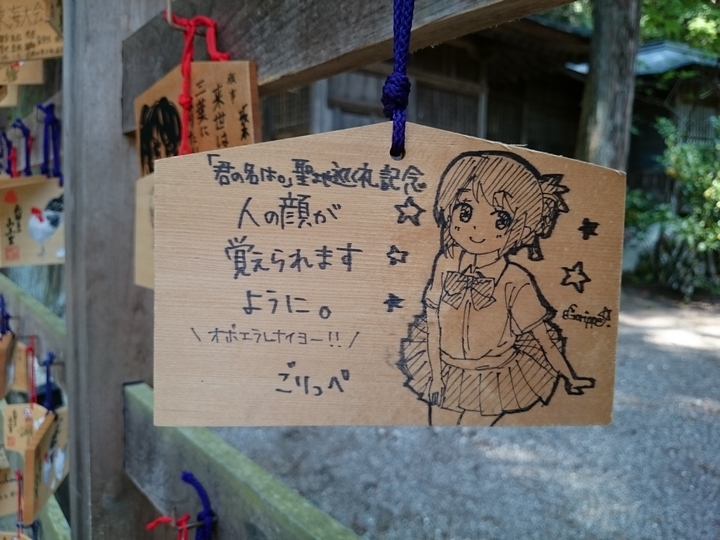 「君の名は。」聖地巡礼記念
人の顔が
覚えられます
ように。
\ オボエラレナイヨー!! /
ごりっぺ
来世は
三葉に